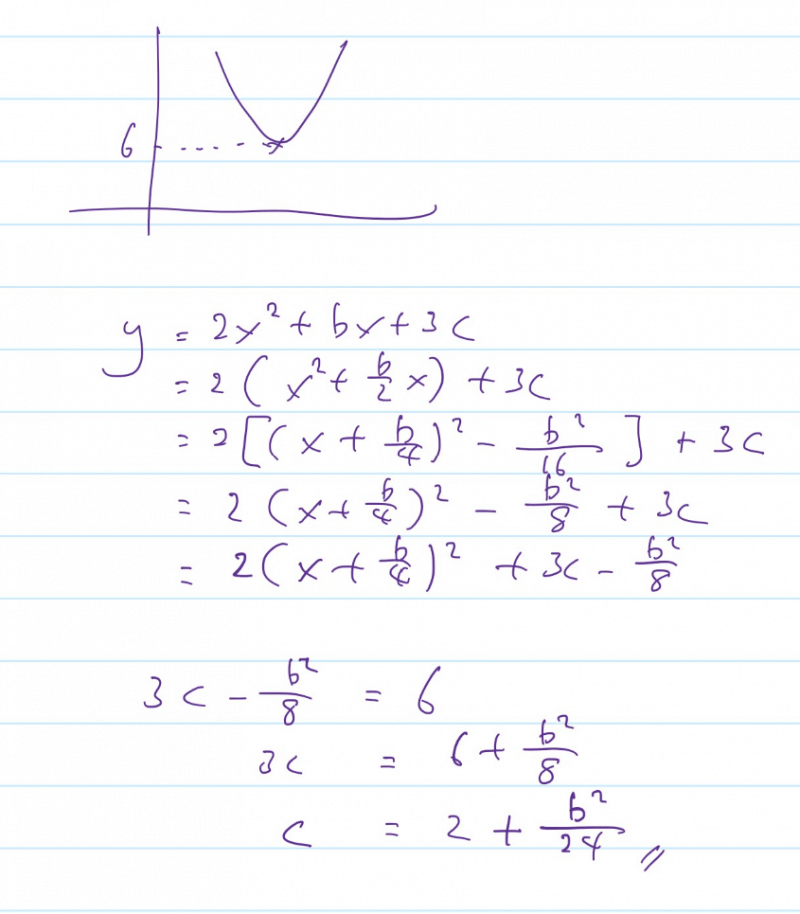 6
y = 2x² + bx + 3c
= 2 ( x² + b/2 x ) + 3c
= 2 [ ( x + b/4 )² - b²/16 ] + 3c
= 2 ( x + b/4 )² - b²/8 + 3c
= 2 ( x + b/4 )² + 3c - b²/8
3c - b²/8 = 6
3c = 6 + b²/8
c = 2 + b²/24 //